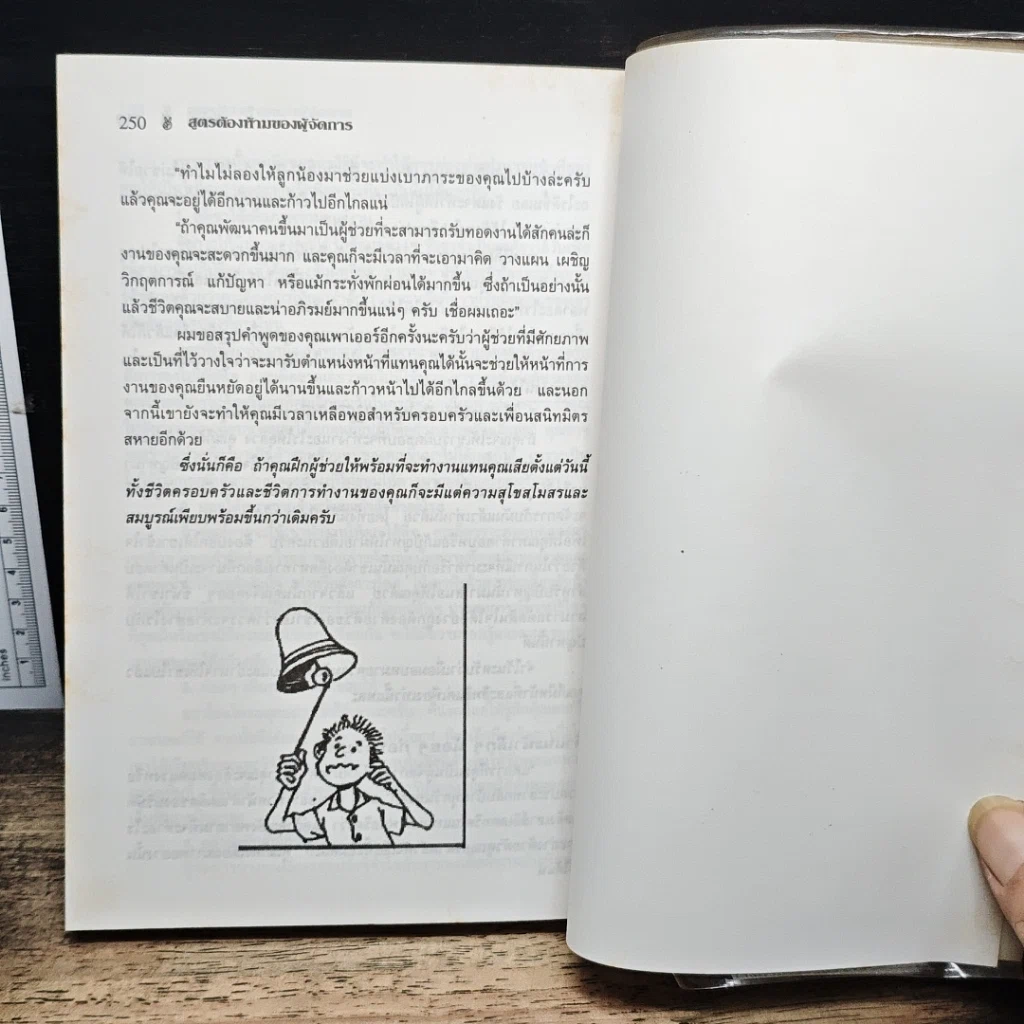 250 สูตรต้องห้ามของผู้จัดการ
"ทำไมไม่ลองให้ลูกน้องมาช่วยแบ่งเบาภาระของคุณไปบ้างล่ะครับ
แล้วคุณจะอยู่ได้อีกนานและก้าวไปอีกไกลแน่
"ถ้าคุณพัฒนาคนขึ้นมาเป็นผู้ช่วยที่จะสามารถรับทอดงานได้สักคนล่ะก็
งานของคุณจะสะดวกขึ้นมาก และคุณก็จะมีเวลาที่จะเอามาคิด วางแผน เผชิญ
วิกฤตการณ์ แก้ปัญหา หรือแม้กระทั่งพักผ่อนได้มากขึ้น ซึ่งถ้าเป็นอย่างนั้น
แล้วชีวิตคุณจะสบายและน่าอภิรมย์มากขึ้นแน่ๆ ครับ เชื่อผมเถอะ"
ผมขอสรุปคำพูดของคุณเพาเออร์อีกครั้งนะครับว่าผู้ช่วยที่มีศักยภาพ
และเป็นที่ไว้วางใจว่าจะมารับตำแหน่งหน้าที่แทนคุณได้นั้นจะช่วยให้หน้าที่การ
งานของคุณยืนหยัดอยู่ได้นานขึ้นและก้าวหน้าไปได้อีกไกลขึ้นด้วย และนอก
จากนี้เขายังจะทำให้คุณมีเวลาเหลือพอสำหรับครอบครัวและเพื่อนสนิทมิตร
สหายอีกด้วย
ซึ่งนั่นก็คือ ถ้าคุณฝึกผู้ช่วยให้พร้อมที่จะทำงานแทนคุณเสียตั้งแต่วันนี้
ทั้งชีวิตครอบครัวและชีวิตการทำงานของคุณก็จะมีแต่ความสุโขสโมสรและ
สมบูรณ์เพียบพร้อมขึ้นกว่าเดิมครับ
6
5
4
3
2
1
inches